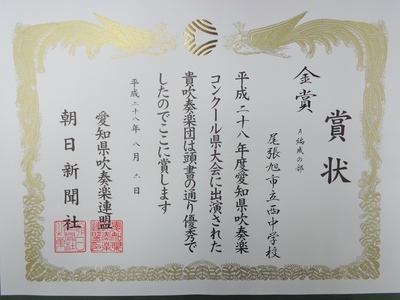 賞状
金賞
A編成の部
尾張旭市立西中学校
平成二十八年度愛知県吹奏楽
コンクール県大会に出演された
貴吹奏楽団は頭書の通り優秀で
したのでここに賞します
平成二十八年八月六日
愛知県吹奏楽連盟
朝日新聞社